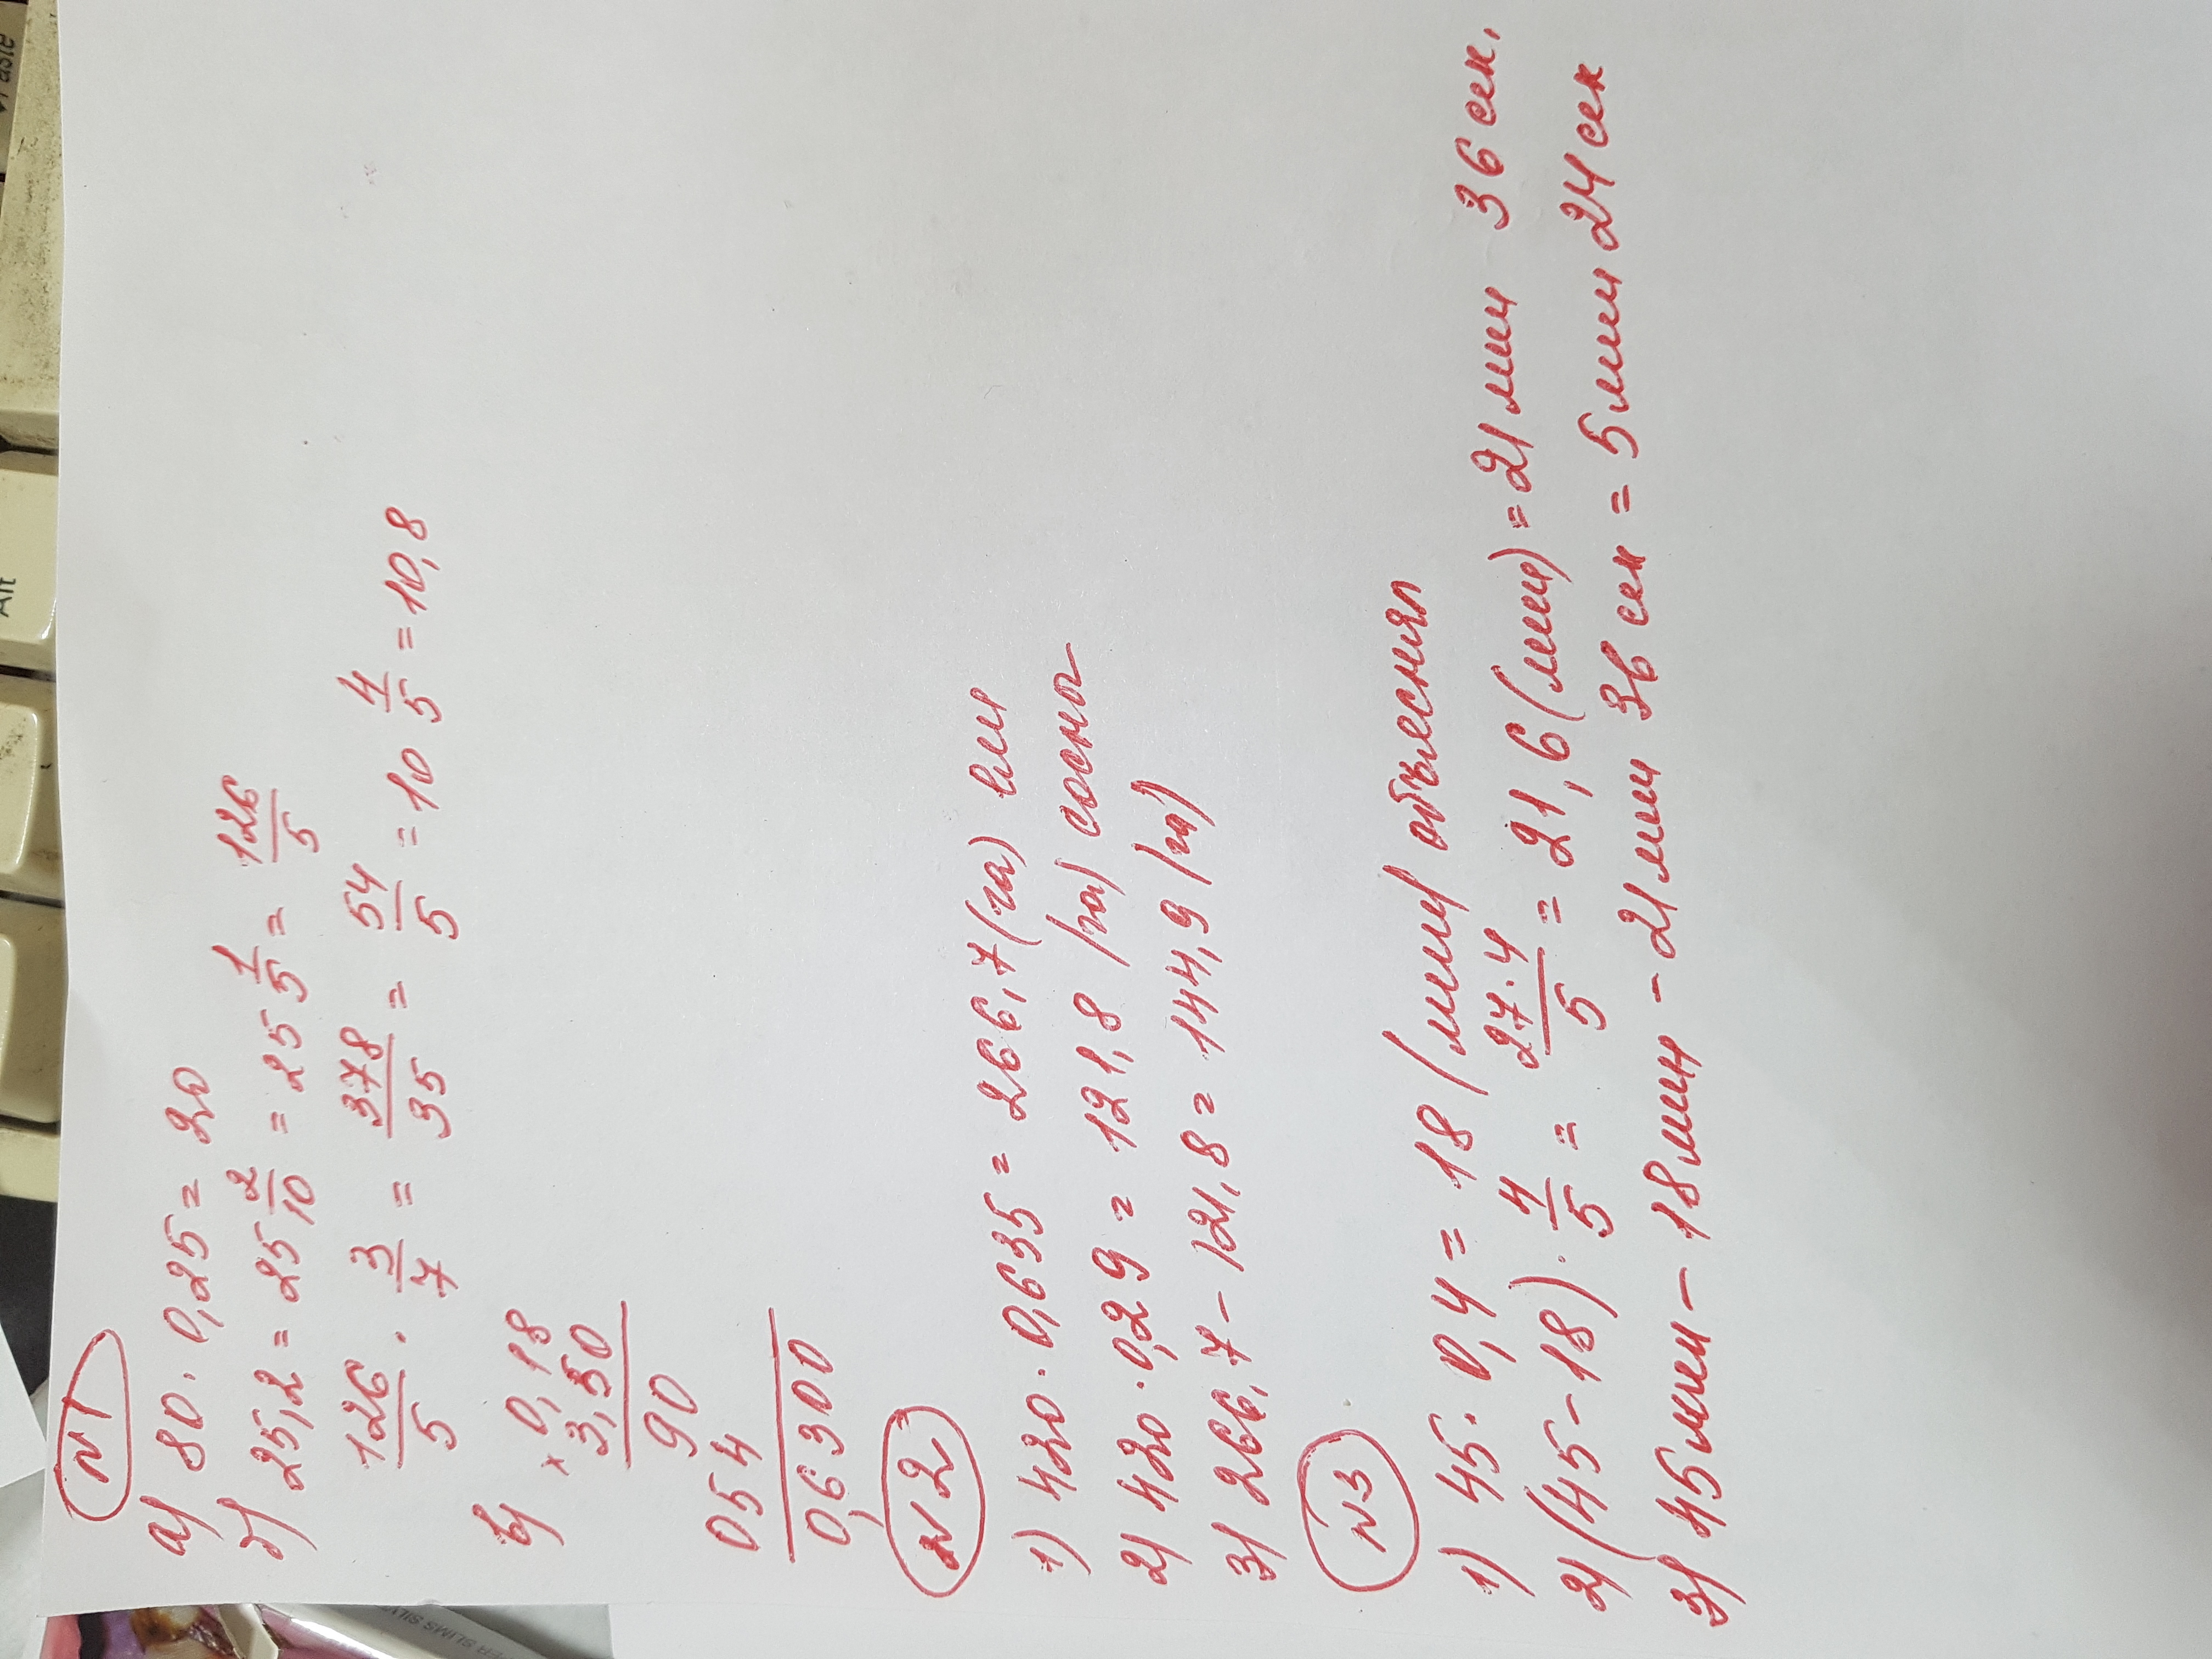 N1
а) 80 · 0,25 = 20
г) 25,2 = 25 2/10 = 25 1/5 = 126/5
126/5 · 3/7 = 378/35 = 54/5 = 10 4/5 = 10,8
в) × 0,18
3,50
90
054
0,6300
N2
1) 420 · 0,635 = 266,7 (га) ели
2) 420 · 0,29 = 121,8 (га) сосны
3) 266,7 - 121,8 = 144,9 (га)
N3
1) 45 · 0,4 = 18 (мин) объяснял
2) (45-18) · 4/5 = 27·4/5 = 21,6 (мин) = 21 мин 36 сек.
3) 45 мин - 18 мин - 21 мин 36 сек = 5 мин 24 сек
Alt
Paste